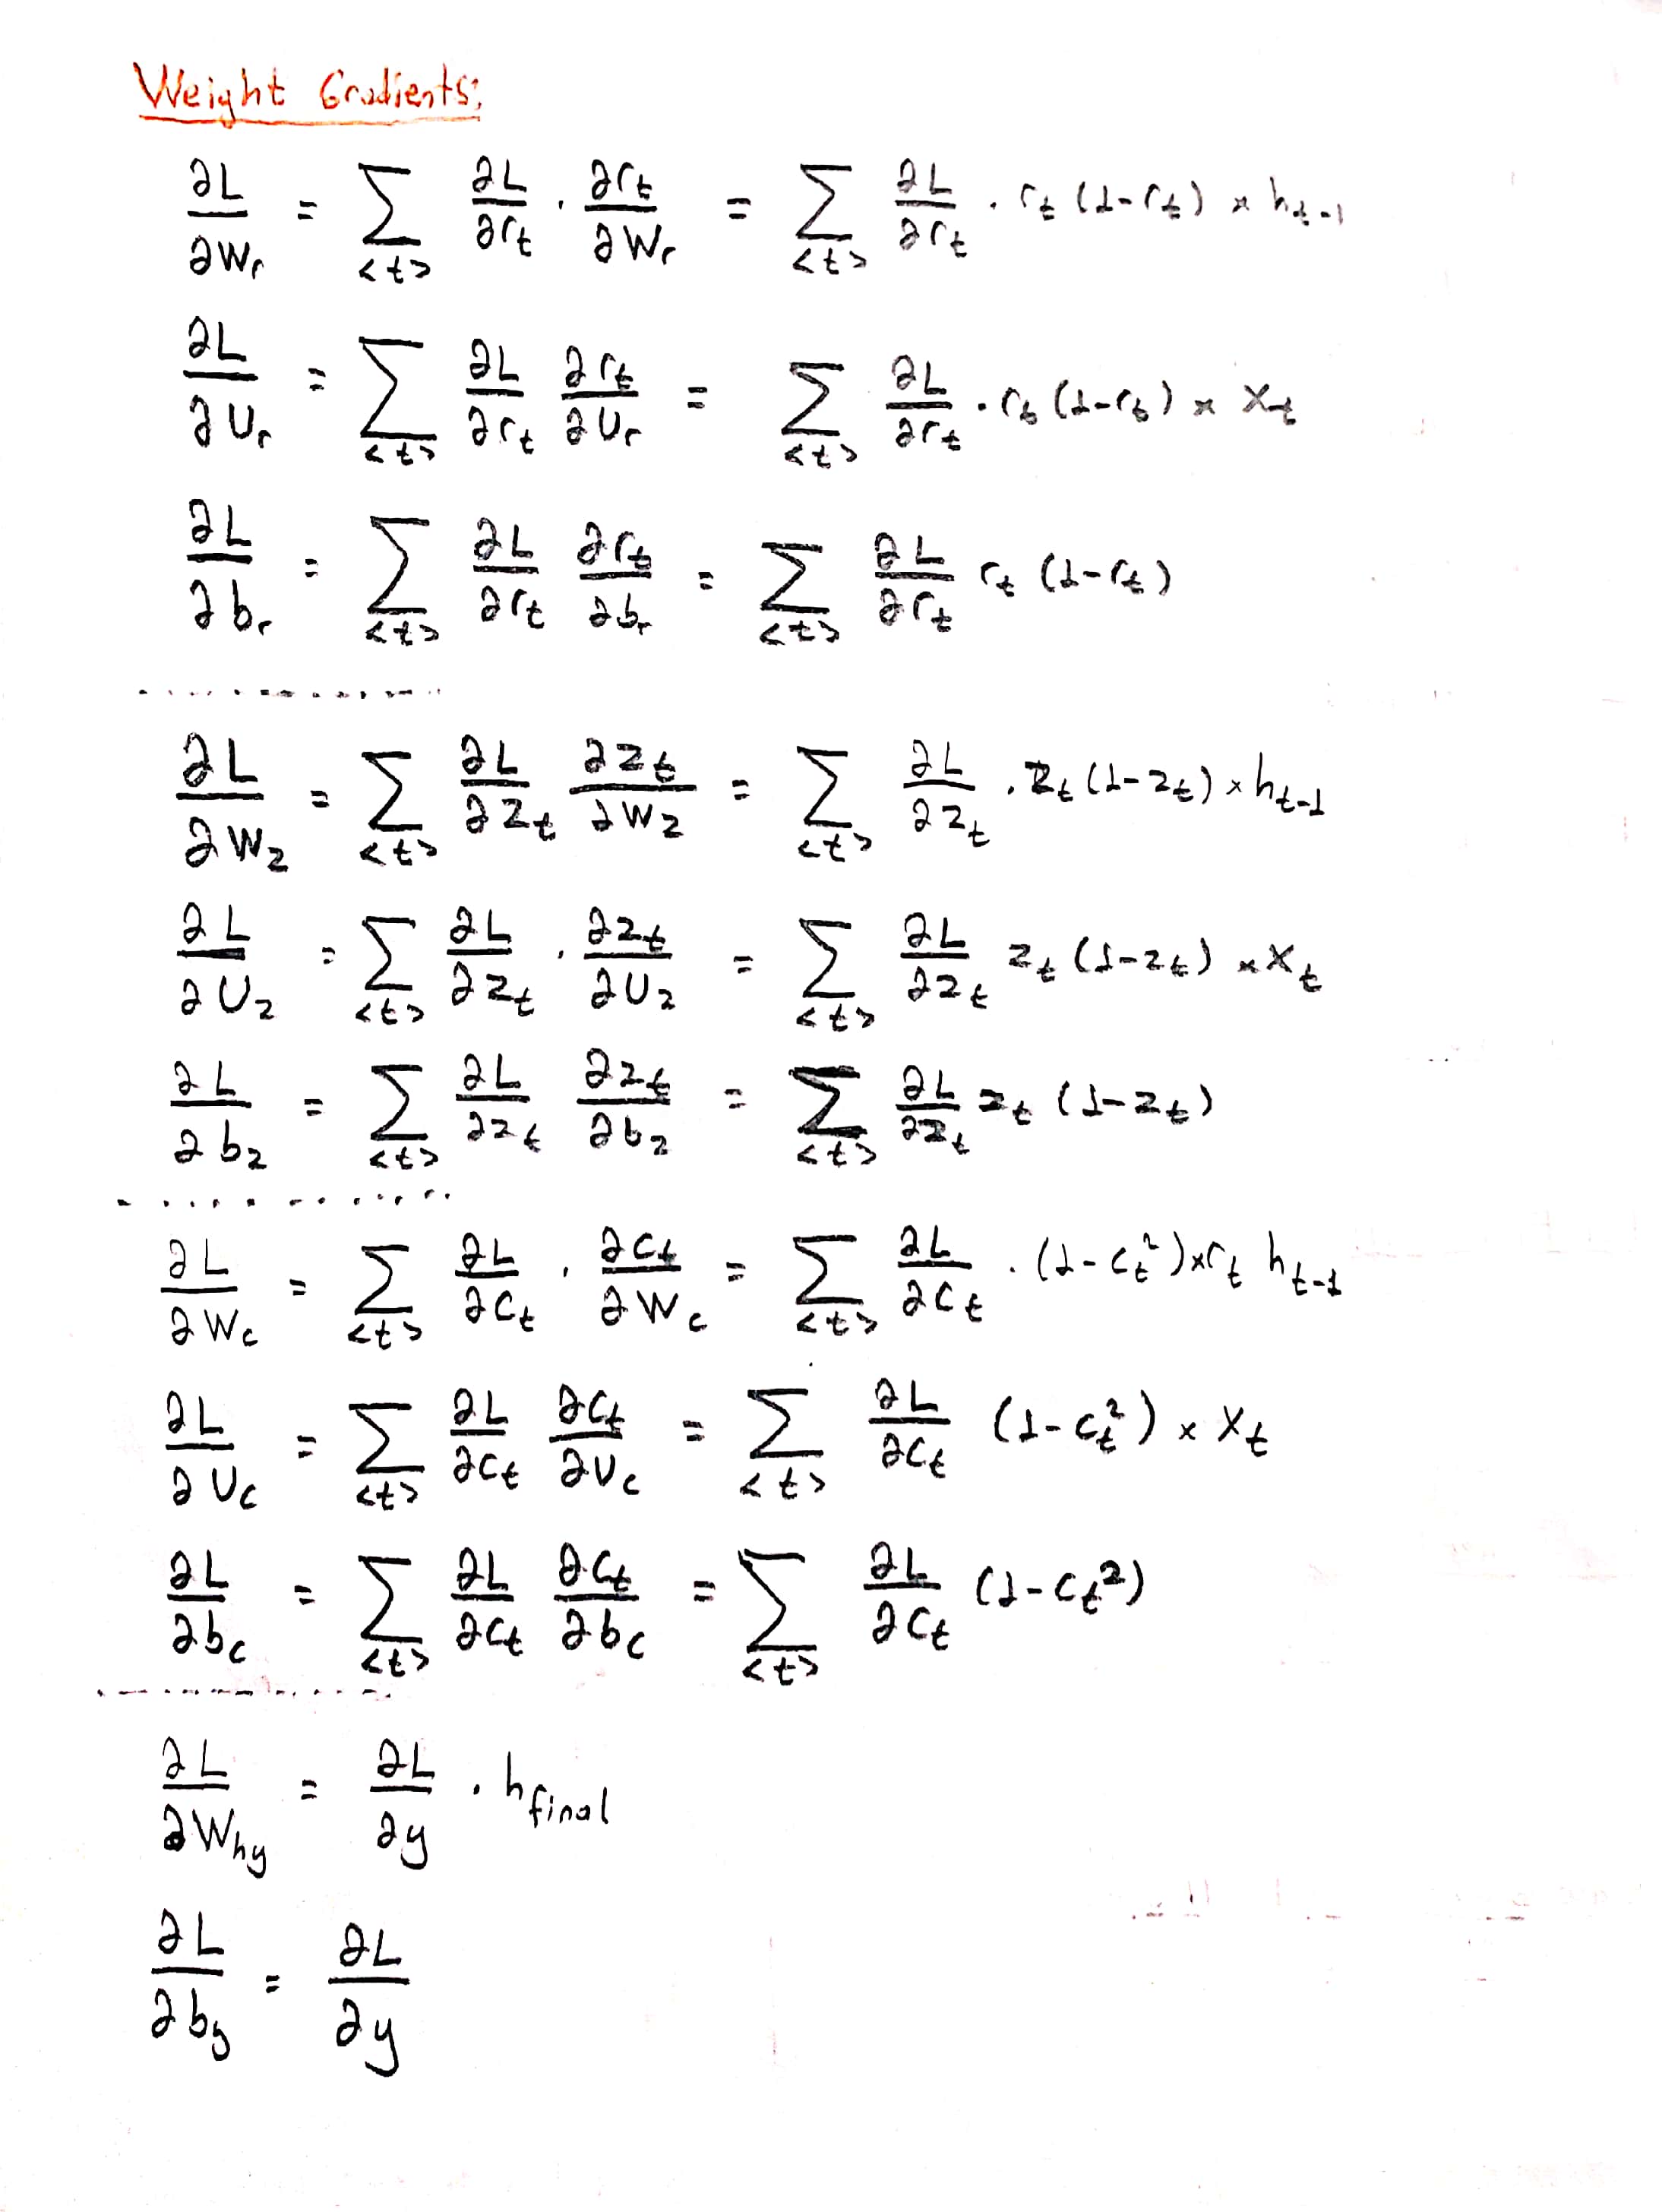 Weight Gradients:
∂L/∂Wr = Σ<t> ∂L/∂rt · ∂rt/∂Wr = Σ<t> ∂L/∂rt · rt (1-rt) × ht-1
∂L/∂Ur = Σ<t> ∂L/∂rt ∂rt/∂Ur = Σ<t> ∂L/∂rt · rt (1-rt) × Xt
∂L/∂br = Σ<t> ∂L/∂rt ∂rt/∂br = Σ<t> ∂L/∂rt rt (1-rt)
∂L/∂Wz = Σ<t> ∂L/∂zt ∂zt/∂Wz = Σ<t> ∂L/∂zt · zt (1-zt) × ht-1
∂L/∂Uz = Σ<t> ∂L/∂zt · ∂zt/∂Uz = Σ<t> ∂L/∂zt zt (1-zt) × Xt
∂L/∂bz = Σ<t> ∂L/∂zt ∂zt/∂bz = Σ<t> ∂L/∂zt zt (1-zt)
∂L/∂Wc = Σ<t> ∂L/∂ct · ∂ct/∂Wc = Σ<t> ∂L/∂ct · (1-ct²) × rt ht-1
∂L/∂Uc = Σ<t> ∂L/∂ct ∂ct/∂Uc = Σ<t> ∂L/∂ct (1-ct²) × Xt
∂L/∂bc = Σ<t> ∂L/∂ct ∂ct/∂bc = Σ<t> ∂L/∂ct (1-ct²)
∂L/∂Why = ∂L/∂y · hfinal
∂L/∂by = ∂L/∂y